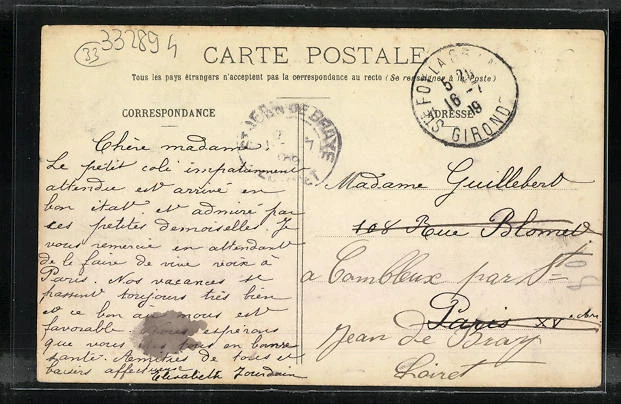 33 332894
CARTE POSTALE
Tous les pays étrangers n'acceptent pas la correspondance au recto (Se renseigner à la Poste)
CORRESPONDANCE
ADRESSE
STE FOY LA GIRONDE
16 -7
ST JEAN DE BRAYE
LOIRET
Chère madame
Le petit coli impatiemment
attendue est arrivé en
bon état et admiré par
ces petites demoiselles Je
vous remercie en attendant
de le faire de vive voix à
Paris. Nos vacances se
passent toujours très bien
et ce bon air nous est
favorable espérons
que vous tous en bonne
santé. Amitiés de tous et
baisers affectueux
Elisabeth Jourdain
Madame Guillebert
108 Rue Blomet
à Combleux par St
Paris XV
Jean de Bray
Loiret